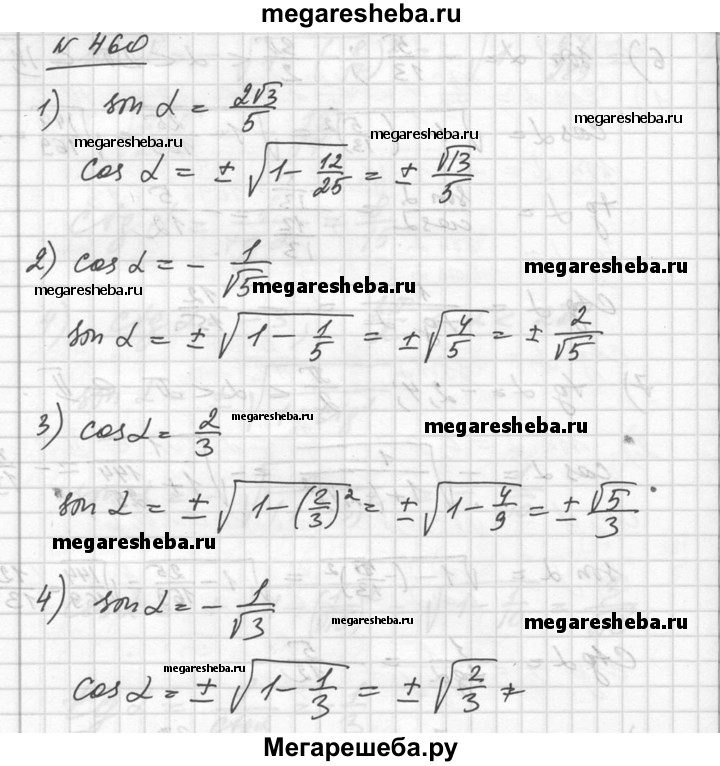 megaresheba.ru
№ 460
1) sin α = 2√3/5
megaresheba.ru
megaresheba.ru
megaresheba.ru
cos α = ± √(1 - 12/25) = ± √13/5
2) cos α = - 1/√5
megaresheba.ru
megaresheba.ru
megaresheba.ru
sin α = ± √(1 - 1/5) = ± √(4/5) = ± 2/√5
3) cos α = 2/3
megaresheba.ru
megaresheba.ru
sin α = ± √(1 - (2/3)²) = ± √(1 - 4/9) = ± √5/3.
megaresheba.ru
4) sin α = - 1/√3
megaresheba.ru
megaresheba.ru
megaresheba.ru
cos α = ± √(1 - 1/3) = ± √(2/3)
Мегарешеба.ру